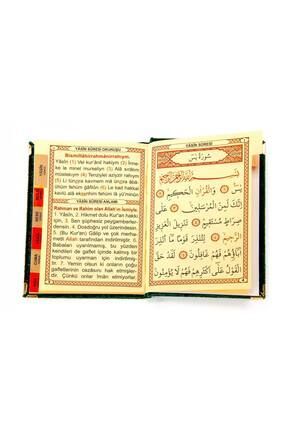 YÂSİN SÛRESİ OKUNUŞU
Bismillâhirrahmânirrahıym.
Yâsîn (1) Vel kur'ânil hakiym (2) İnne-
ke le minel murseliyn (3) Alâ sırâtın
müstekıym (4) Tenziylel aziyzir rahıym
(5) Li tünzira kavmem mâ ünzira âbâ-
ühüm fehüm ğâfilûn (6) Le kad hakkal
kavlü alâ ekserihim fehüm lâ yü'minûn
YÂSİN SÛRESİ ANLAMI
Rahman ve Rahim olan Allah'ın ismiyle.
1. Yâsin, 2. Hikmet dolu Kur'an hakkı
için, 3. Sen şüphesiz peygamberler-
densin. 4. Dosdoğru yol üzerindesin.
5. (Bu Kur'an) Gâlip ve çok merha-
metli Allah tarafından indirilmiştir. 6.
Babaları uyarılmamış, bu yüzden
kendileri de gaflet içinde kalmış bir
toplumu uyarman için indirilmişti-
r. 7. Yemin olsun ki onların çoğu
gafletlerinin cezasını hak etmişler-
dir. Çünkü onlar iman etmiyorlar.
YÂSİN SÛRESİ
سُورَةُ يٰسٓ
بِسْمِ اللّٰهِ الرَّحْمٰنِ الرَّحِيمِ
يٰسٓ وَالْقُرْاٰنِ الْحَكِيمِ
اِنَّكَ لَمِنَ الْمُرْسَلِينَ عَلٰى
صِرَاطٍ مُسْتَقِيمٍ تَنْزِيلَ الْعَزِيزِ
الرَّحِيمِ لِتُنْذِرَ قَوْمًا مَا اُنْذِرَ
اٰبَاؤُهُمْ فَهُمْ غَافِلُونَ لَقَدْ حَقَّ
الْقَوْلُ عَلٰى اَكْثَرِهِمْ فَهُمْ لَا يُؤْمِنُونَ